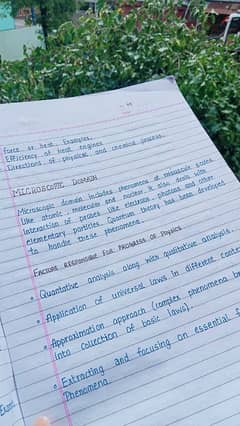 Force or heat. Examples,
Efficiency of heat engines
Directions of physical and chemical process.
MICROSCOPIC DOMAIN
Microscopic domain includes phenomena at minuscule scales
like atomic, molecular and nuclear. It also deals with
Interaction of probes like electrons, photons and other
elementary particles. Quantum theory has been developed
to handle these phenomena.
FACTORS RESPONSIBLE FOR PROGRESS OF PHYSICS
• Quantative analysis along with qualitative analysis.
• Application of universal laws in different cont
• Approximation approach (complex phenomena br
into collection of basic laws).
• Extracting and focusing on essential f
Phenomena.